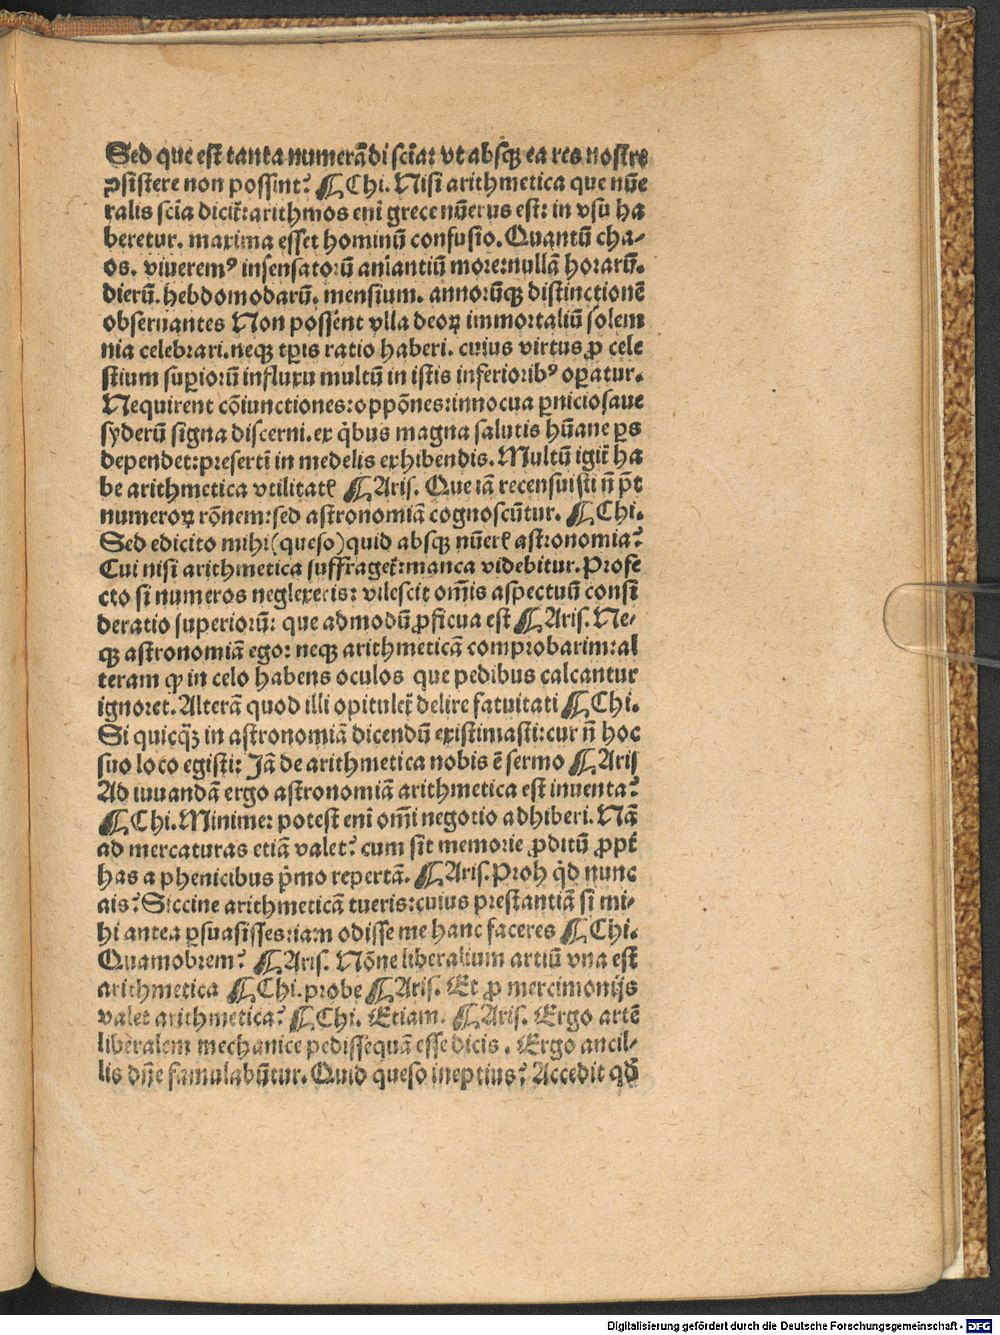 Sed que est tanta numerādi scīa: vt absqꝫ ea res nostre
ꝯsistere non possint? ¶ Chi. Nisi arithmetica que nūe
ralis scīa dicit᷑: arithmos enī grece nūerus est: in vsu ha
beretur. maxima esset hominū confusio. Quantū cha-
os. viueremꝰ insensatorū aniantiū more: nullā horarū.
dierū. hebdomodarū. mensium. annorūqꝫ distinctionē
obseruantes Non possent vlla deoꝝ immortaliū solem
nia celebrari. neqꝫ tꝑis ratio haberi. cuius virtus ꝓ cele
stium suꝑiorū influxu multū in istis inferioribꝰ oꝑatur.
Nequirent cōiunctiones: oppōnes: innocua ꝑniciosaue
syderū signa discerni. ex q̇bus magna salutis hūane ꝑs
dependet: presertī in medelis exhibendis. Multū igit᷑ ha
be arithmetica vtilitatē ¶ Aris. Que iā recensuisti n̄ p̄t
numeroꝝ rōnem: sed astronomiā cognoscūtur. ¶ Chi.
Sed edicito mihi (queso) quid absqꝫ nūerē astronomia?
Cui nisi arithmetica suffraget᷑: manca videbitur. Profe
cto si numeros neglexeris: vilescit om̄is aspectuū consi
deratio superiorū: que admodū ꝓficua est ¶ Aris. Ne-
qꝫ astronomiā ego: neqꝫ arithmeticā comprobarim: al
teram ꝙ in celo habens oculos que pedibus calcantur
ignoret. Alterā quod illi opitulet᷑ delire fatuitati ¶ Chi.
Si quicq̄ꝫ in astronomiā dicendū existimasti: cur n̄ hoc
suo loco egisti: Jā de arithmetica nobis ē sermo ¶ Aris
Ad iuuandā ergo astronomiā arithmetica est inuenta?
¶ Chi. Minime: potest enī om̄i negotio adhiberi. Nā
ad mercaturas etiā valet? cum sit memorie ꝓditū ꝓpt᷑
has a phenicibus p̄mo repertā. ¶ Aris. Proh q̇d nunc
ais? Siccine arithmeticā tueris: cuius prestantiā si mi-
hi antea ꝑsuasisses: iam odisse me hanc faceres ¶ Chi.
Quamobrem? ¶ Aris. Nōne liberalium artiū vna est
arithmetica ¶ Chi. probe ¶ Aris. Et ꝓ mercimonijs
valet arithmetica? ¶ Chi. Etiam. ¶ Aris. Ergo artē
liberalem mechanice pedissequā esse dicis. Ergo ancil-
lis dn̄e famulabūtur. Quid queso ineptius? Accedit qđ
Digitalisierung gefördert durch die Deutsche Forschungsgemeinschaft - DFG